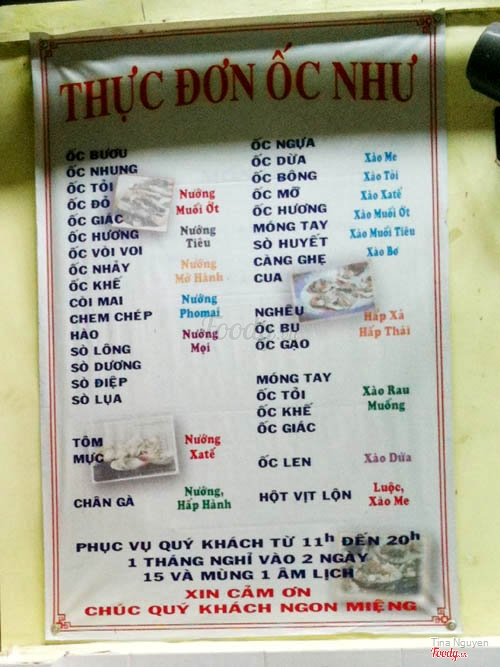 THỰC ĐƠN ỐC NHƯ
ỐC BƯƠU
ỐC NHUNG
ỐC TỎI
ỐC ĐỎ
ỐC GIÁC
ỐC HƯƠNG
ỐC VÒI VOI
ỐC NHẢY
ỐC KHẾ
CÒI MAI
CHEM CHÉP
HÀO
SÒ LÔNG
SÒ DƯƠNG
SÒ ĐIỆP
SÒ LỤA
Nướng
Muối Ớt
Nướng
Tiêu
Nướng
Mỡ Hành
Nướng
Phomai
Nướng
Mọi
TÔM
MỰC
Nướng
Xatế
CHÂN GÀ
Nướng,
Hấp Hành
ỐC NGỰA
ỐC DỪA
ỐC BÔNG
ỐC MỠ
ỐC HƯƠNG
MÓNG TAY
SÒ HUYẾT
CÀNG GHẸ
CUA
Xào Me
Xào Tỏi
Xào Xatế
Xào Muối Ớt
Xào Muối Tiêu
Xào Bơ
NGHÊU
ỐC BỤ
ỐC GẠO
Hấp Xả
Hấp Thái
MÓNG TAY
ỐC TỎI
ỐC KHẾ
ỐC GIÁC
Xào Rau
Muống
ỐC LEN
Xào Dừa
HỘT VỊT LỘN
Luộc,
Xào Me
PHỤC VỤ QUÝ KHÁCH TỪ 11h ĐẾN 20h
1 THÁNG NGHỈ VÀO 2 NGÀY
15 VÀ MÙNG 1 ÂM LỊCH
XIN CẢM ƠN
CHÚC QUÝ KHÁCH NGON MIỆNG
Foody.vn
Tina Nguyen
Foody.vn